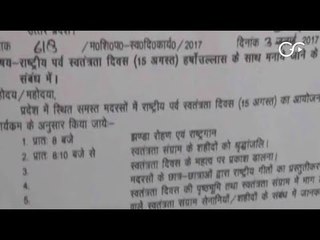 त्राक 618 / म0शि0प0-स्व0दि0कार्य0/2017 दिनांक 3
षय-राष्ट्रीय पर्व स्वतंत्रता दिवस (15 अगस्त) हर्षोउल्लास के साथ मनाये जाने के
संबंध में।
होदय/महोदया,
प्रदेश में स्थित समस्त मदरसों में राष्ट्रीय पर्व स्वतंत्रता दिवस (15 अगस्त) का आयोजन
र्यक्रम के अनुसार किया जाये:-
1. प्रातः 8 बजे झण्डा रोहण एवं राष्ट्रगान
2. प्रातः 8:10 बजे से स्वतंत्रता संग्राम के शहीदों को श्रृद्धांजलि।
3. स्वतंत्रता दिवस के महत्व पर प्रकाश डालना।
4. मदरसों के छात्र-छात्राओं द्वारा राष्ट्रीय गीतों का प्रस्तुतीकर
5. स्वतंत्रता दिवस की पृष्ठभूमि तथा स्वतंत्रता संग्राम में भाग
वाले स्वतंत्रता संग्राम सेनानियों/शहीदों के संबंध में जानक